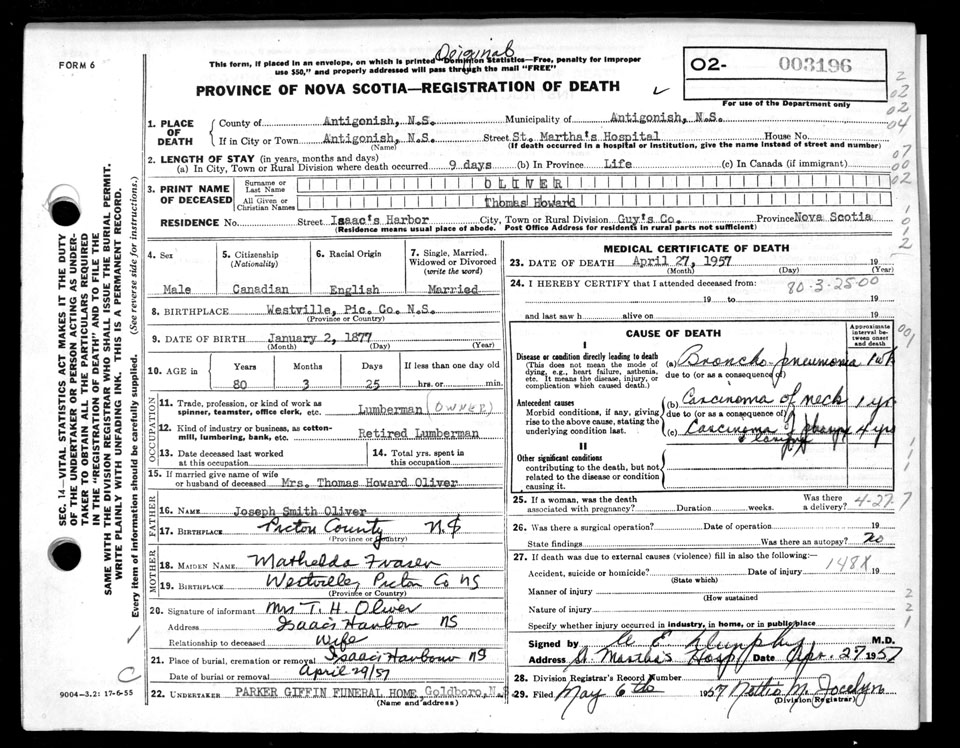 Original
FORM 6
This form, if placed in an envelope, on which is printed "Dominion Statistics—Free, penalty for improper
use $50," and properly addressed will pass through the mail "FREE"
02- 003196
For use of the Department only
PROVINCE OF NOVA SCOTIA—REGISTRATION OF DEATH
1. PLACE OF DEATH
County of Antigonish, N.S. Municipality of Antigonish, N.S.
If in City or Town Antigonish, N.S. Street St. Martha's Hospital House No.
(Name) (If death occurred in a hospital or institution, give the name instead of street and number)
2. LENGTH OF STAY (in years, months and days)
(a) In City, Town or Rural Division where death occurred 9 days (b) In Province Life (c) In Canada (if immigrant)
3. PRINT NAME OF DECEASED
Surname or Last Name OLIVER
All Given or Christian Names Thomas Howard
RESIDENCE No. Street Isaac's Harbor City, Town or Rural Division Guy's Co. Province Nova Scotia
(Residence means usual place of abode. Post Office Address for residents in rural parts not sufficient)
4. Sex
Male
5. Citizenship
(Nationality)
Canadian
6. Racial Origin
English
7. Single, Married,
Widowed or Divorced
(write the word)
Married
8. BIRTHPLACE Westville, Pic. Co. N.S.
(Province or Country)
9. DATE OF BIRTH January 2, 1877
(Month) (Day) (Year)
10. AGE in
Years Months Days If less than one day old
80 3 25 hrs. or min.
OCCUPATION
11. Trade, profession, or kind of work as
spinner, teamster, office clerk, etc. Lumberman (OWNER)
12. Kind of industry or business, as cotton-
mill, lumbering, bank, etc. Retired Lumberman
13. Date deceased last worked
at this occupation
14. Total yrs. spent in
this occupation
15. If married give name of wife
or husband of deceased Mrs. Thomas Howard Oliver
FATHER
16. NAME Joseph Smith Oliver
17. BIRTHPLACE Pictou County NS
(Province or Country)
MOTHER
18. MAIDEN NAME Mathelda Fraser
19. BIRTHPLACE Westville, Pictou Co NS
(Province or Country)
20. Signature of informant Mrs T. H. Oliver
Address Isaac's Harbor NS
Relationship to deceased Wife
21. Place of burial, cremation or removal Isaac's Harbour NS
Date of burial or removal April 29/57
22. UNDERTAKER PARKER GIFFIN FUNERAL HOME, Goldboro, N.S.
(Name and address)
MEDICAL CERTIFICATE OF DEATH
23. DATE OF DEATH April 27, 1957 19
(Month) (Day) (Year)
24. I HEREBY CERTIFY that I attended deceased from:
80-3-25-00
19 to 19
and last saw h alive on 19
CAUSE OF DEATH
Approximate
interval be-
tween onset
and death
I
Disease or condition directly leading to death
(This does not mean the mode of
dying, e.g., heart failure, asthenia,
etc. It means the disease, injury, or
complication which caused death.)
(a) Broncho-pneumonia 1 wk
due to (or as a consequence of)
Antecedent causes
Morbid conditions, if any, giving
rise to the above cause, stating the
underlying condition last.
(b) Carcinoma of neck 1 yr
due to (or as a consequence of)
(c) Carcinoma of pharynx 4 yrs
& larynx
II
Other significant conditions
contributing to the death, but not
related to the disease or condition
causing it.
25. If a woman, was the death
associated with pregnancy? Duration weeks. Was there
a delivery?
4-27-7
26. Was there a surgical operation? Date of operation 19
State findings Was there an autopsy? no
27. If death was due to external causes (violence) fill in also the following:—
Accident, suicide or homicide? Date of injury 19
148X
(State which)
Manner of injury
(How sustained
Nature of injury
Specify whether injury occurred in industry, in home, or in public place
Signed by E. Dunphy M.D.
Address St. Martha's Hosp Date Apr. 27 1957
28. Division Registrar's Record Number
29. Filed May 6th 1957 Nettie M. Jocelyn
(Division Registrar)
SEC. 14—VITAL STATISTICS ACT MAKES IT THE DUTY
OF THE UNDERTAKER OR PERSON ACTING AS UNDER-
TAKER TO OBTAIN ALL THE PARTICULARS REQUIRED
IN THE "REGISTRATION OF DEATH" AND TO FILE THE
SAME WITH THE DIVISION REGISTRAR WHO SHALL ISSUE THE BURIAL PERMIT.
WRITE PLAINLY WITH UNFADING INK. THIS IS A PERMANENT RECORD.
Every item of information should be carefully supplied. (See reverse side for instructions.)
C
9004-3.2: 17-6-55
2
02
02
04
07
00
02